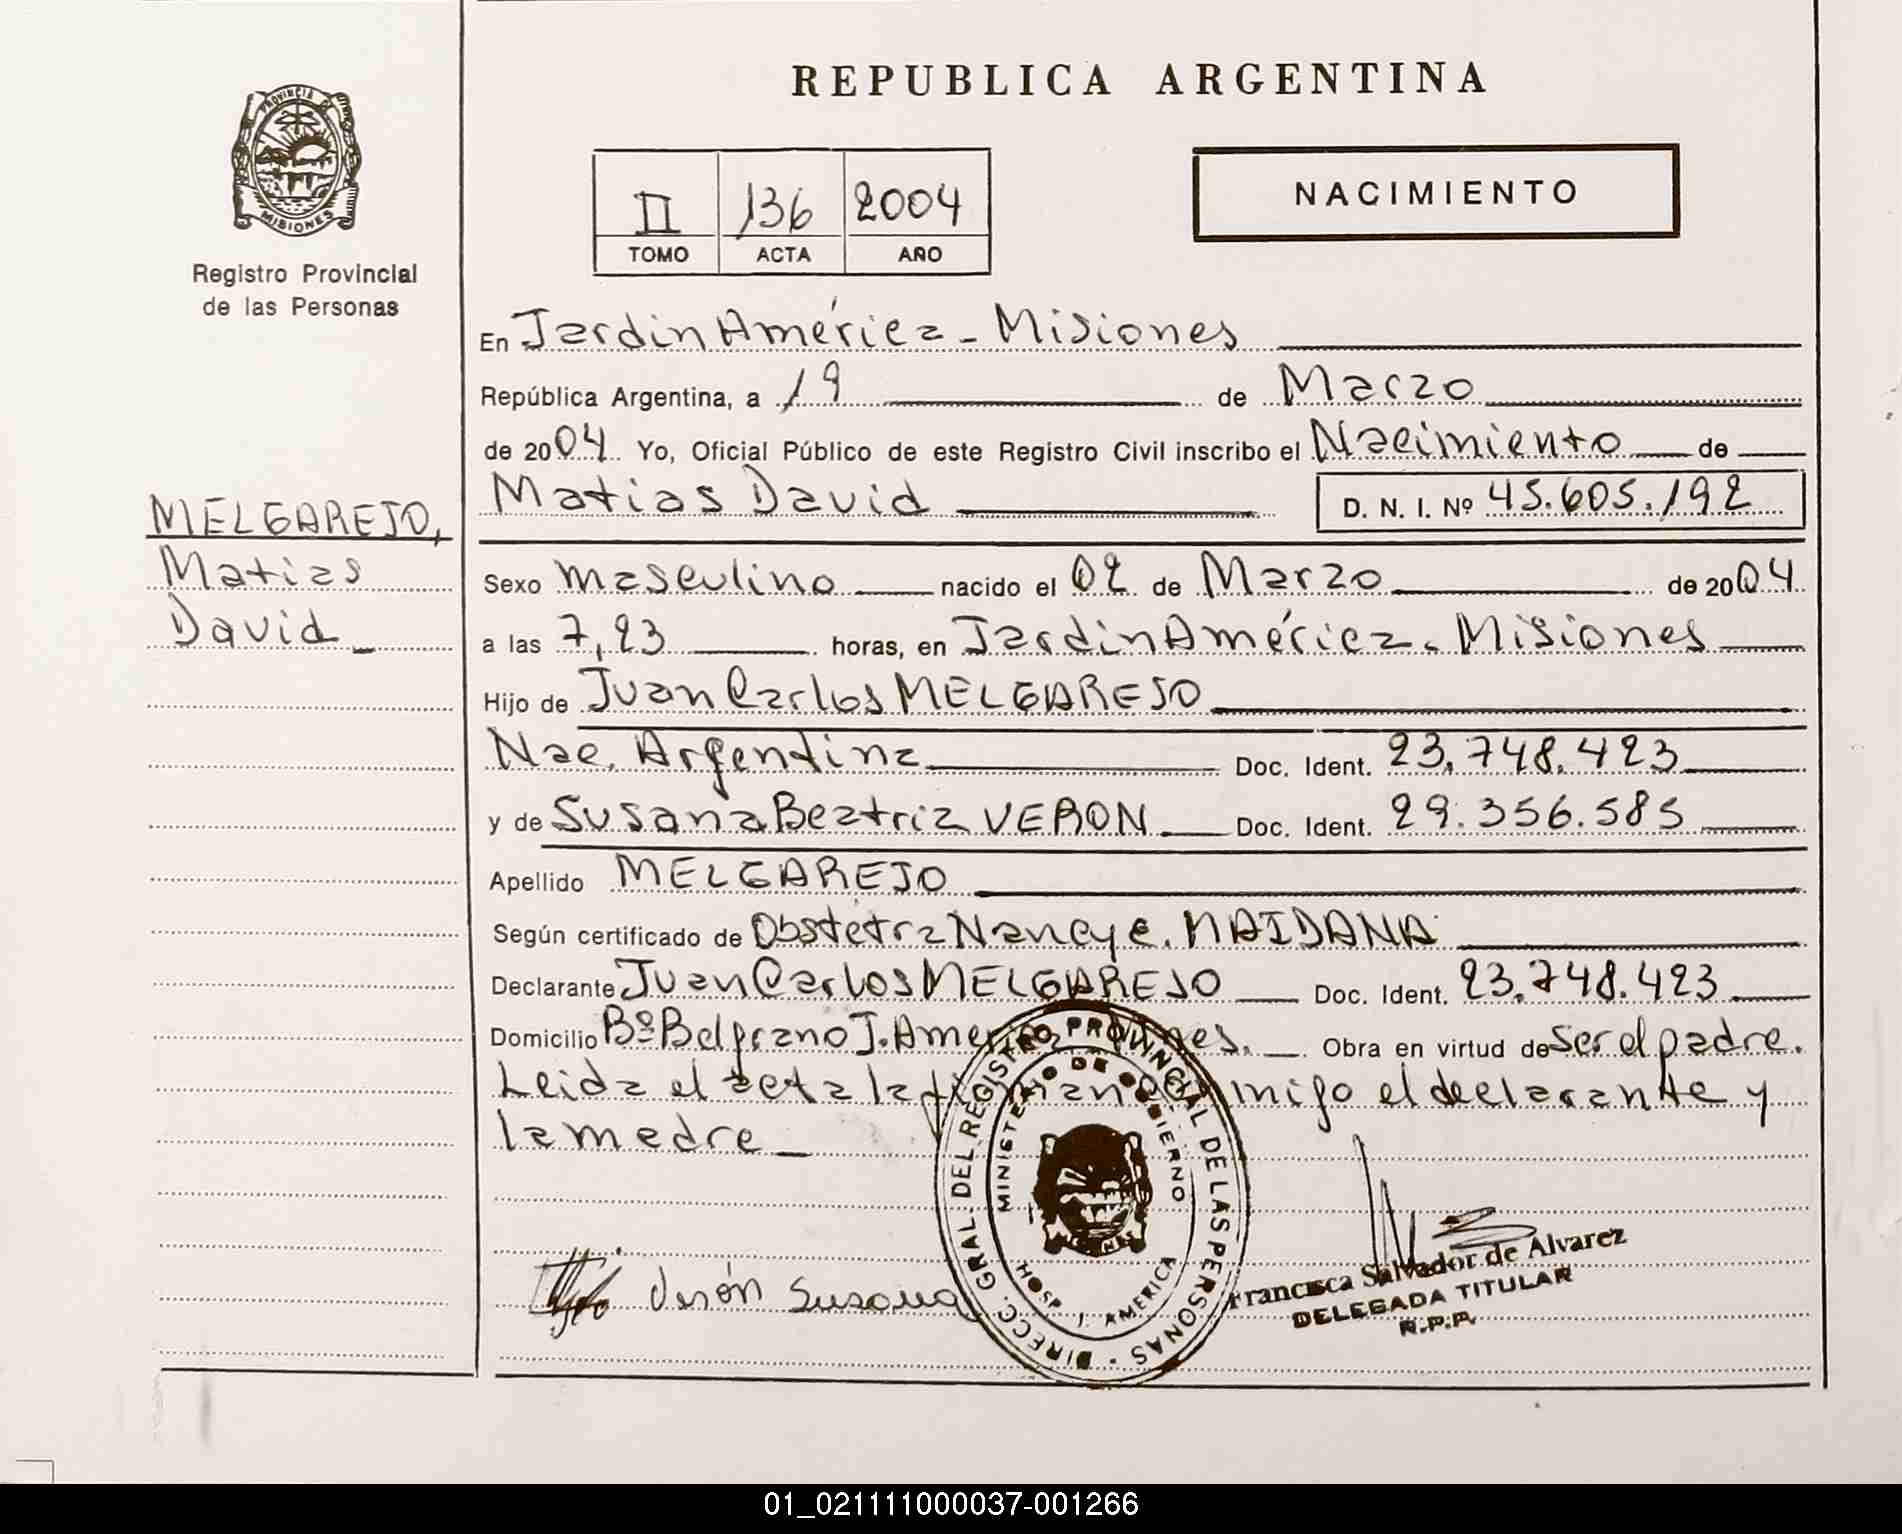 REPUBLICA ARGENTINA
PROVINCIA DE
MISIONES
Registro Provincial
de las Personas
II 136 2004
TOMO ACTA AÑO
NACIMIENTO
En Jardin América - Misiones
República Argentina, a 19 de Marzo
de 2004 Yo, Oficial Público de este Registro Civil inscribo el Nacimiento de
Matias David D. N. I. Nº 45.605.192
MELGAREJO,
Matias
David
Sexo masculino nacido el 02 de Marzo de 2004
a las 7,23 horas, en Jardin América - Misiones
Hijo de Juan Carlos MELGAREJO
Nac. Argentina Doc. Ident. 23.748.423
y de Susana Beatriz VERON Doc. Ident. 29.356.585
Apellido MELGAREJO
Según certificado de Obstetra Nancy e. MAIDANA
Declarante Juan Carlos MELGAREJO Doc. Ident. 23.748.423
Domicilio Bº Belgrano J. America Obra en virtud de ser el padre.
Leida el acta la firman conmigo el declarante y
la madre
DIRECC. GRAL. DEL REGISTRO PROVINCIAL DE LAS PERSONAS
MINISTERIO DE GOBIERNO
HOSP. J. AMERICA
Verón Susana
Francisca Salvador de Alvarez
DELEGADA TITULAR
R.P.P.
01_021111000037-001266